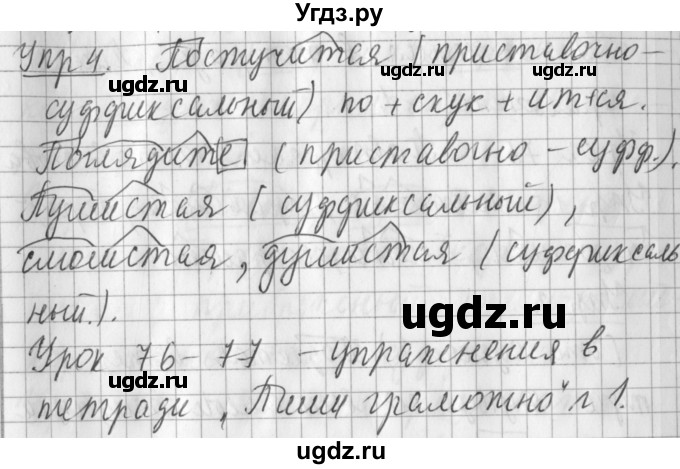 Угдз.ру
Упр 4. Постучится (приставочно-
суффиксальный) по + стук + ит+ся.
Поглядите (приставочно - суфф.).
Пушистая (суффиксальный),
смолистая, душистая (суффиксаль
ный.).
Урок 76-77 - упражнения в
тетради „Пиши грамотно" ч 1.
ugdz.ru
ugdz.ru
ugdz.ru
ugdz.ru
ugdz.ru
ugdz.ru
ugdz.ru
ugdz.ru
ugdz.ru